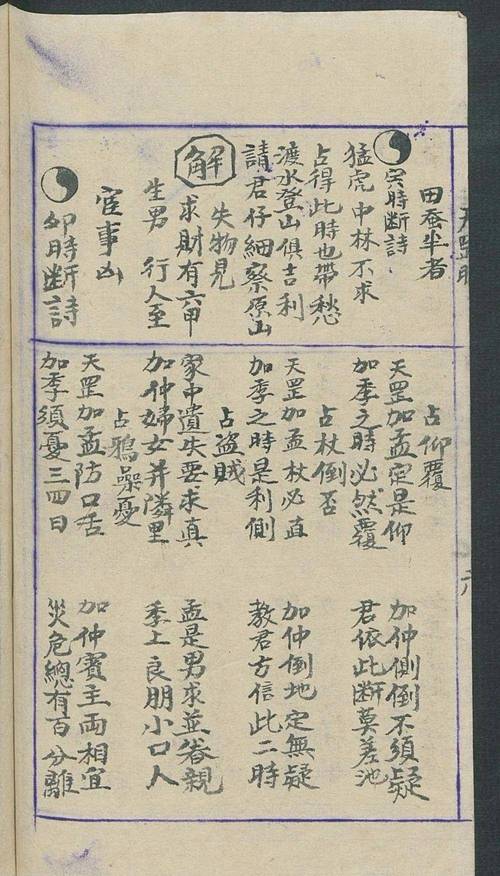 田蚕半者
寅时断詩
猛虎中林不求
占得此時也帶愁
渡水登山俱吉利
請君仔細察原山
解
失物見
求財有 六甲
生男 行人至
官事凶
卯時断詩
占仰覆
天罡加孟定是仰 加仲側倒不須疑
加季之時必然覆 君依此断莫差池
占杖倒否
天罡加孟杖必直 加仲倒地定無疑
加季之時是利側 教君方信此二時
占盗賊
家中遺失要求真 孟是男求並眷親
加仲婦女并隣里 季上良朋小口人
占鴉噪憂
天罡加孟防口舌 加仲賓主両相宜
加季須憂三四日 災危總有百分離